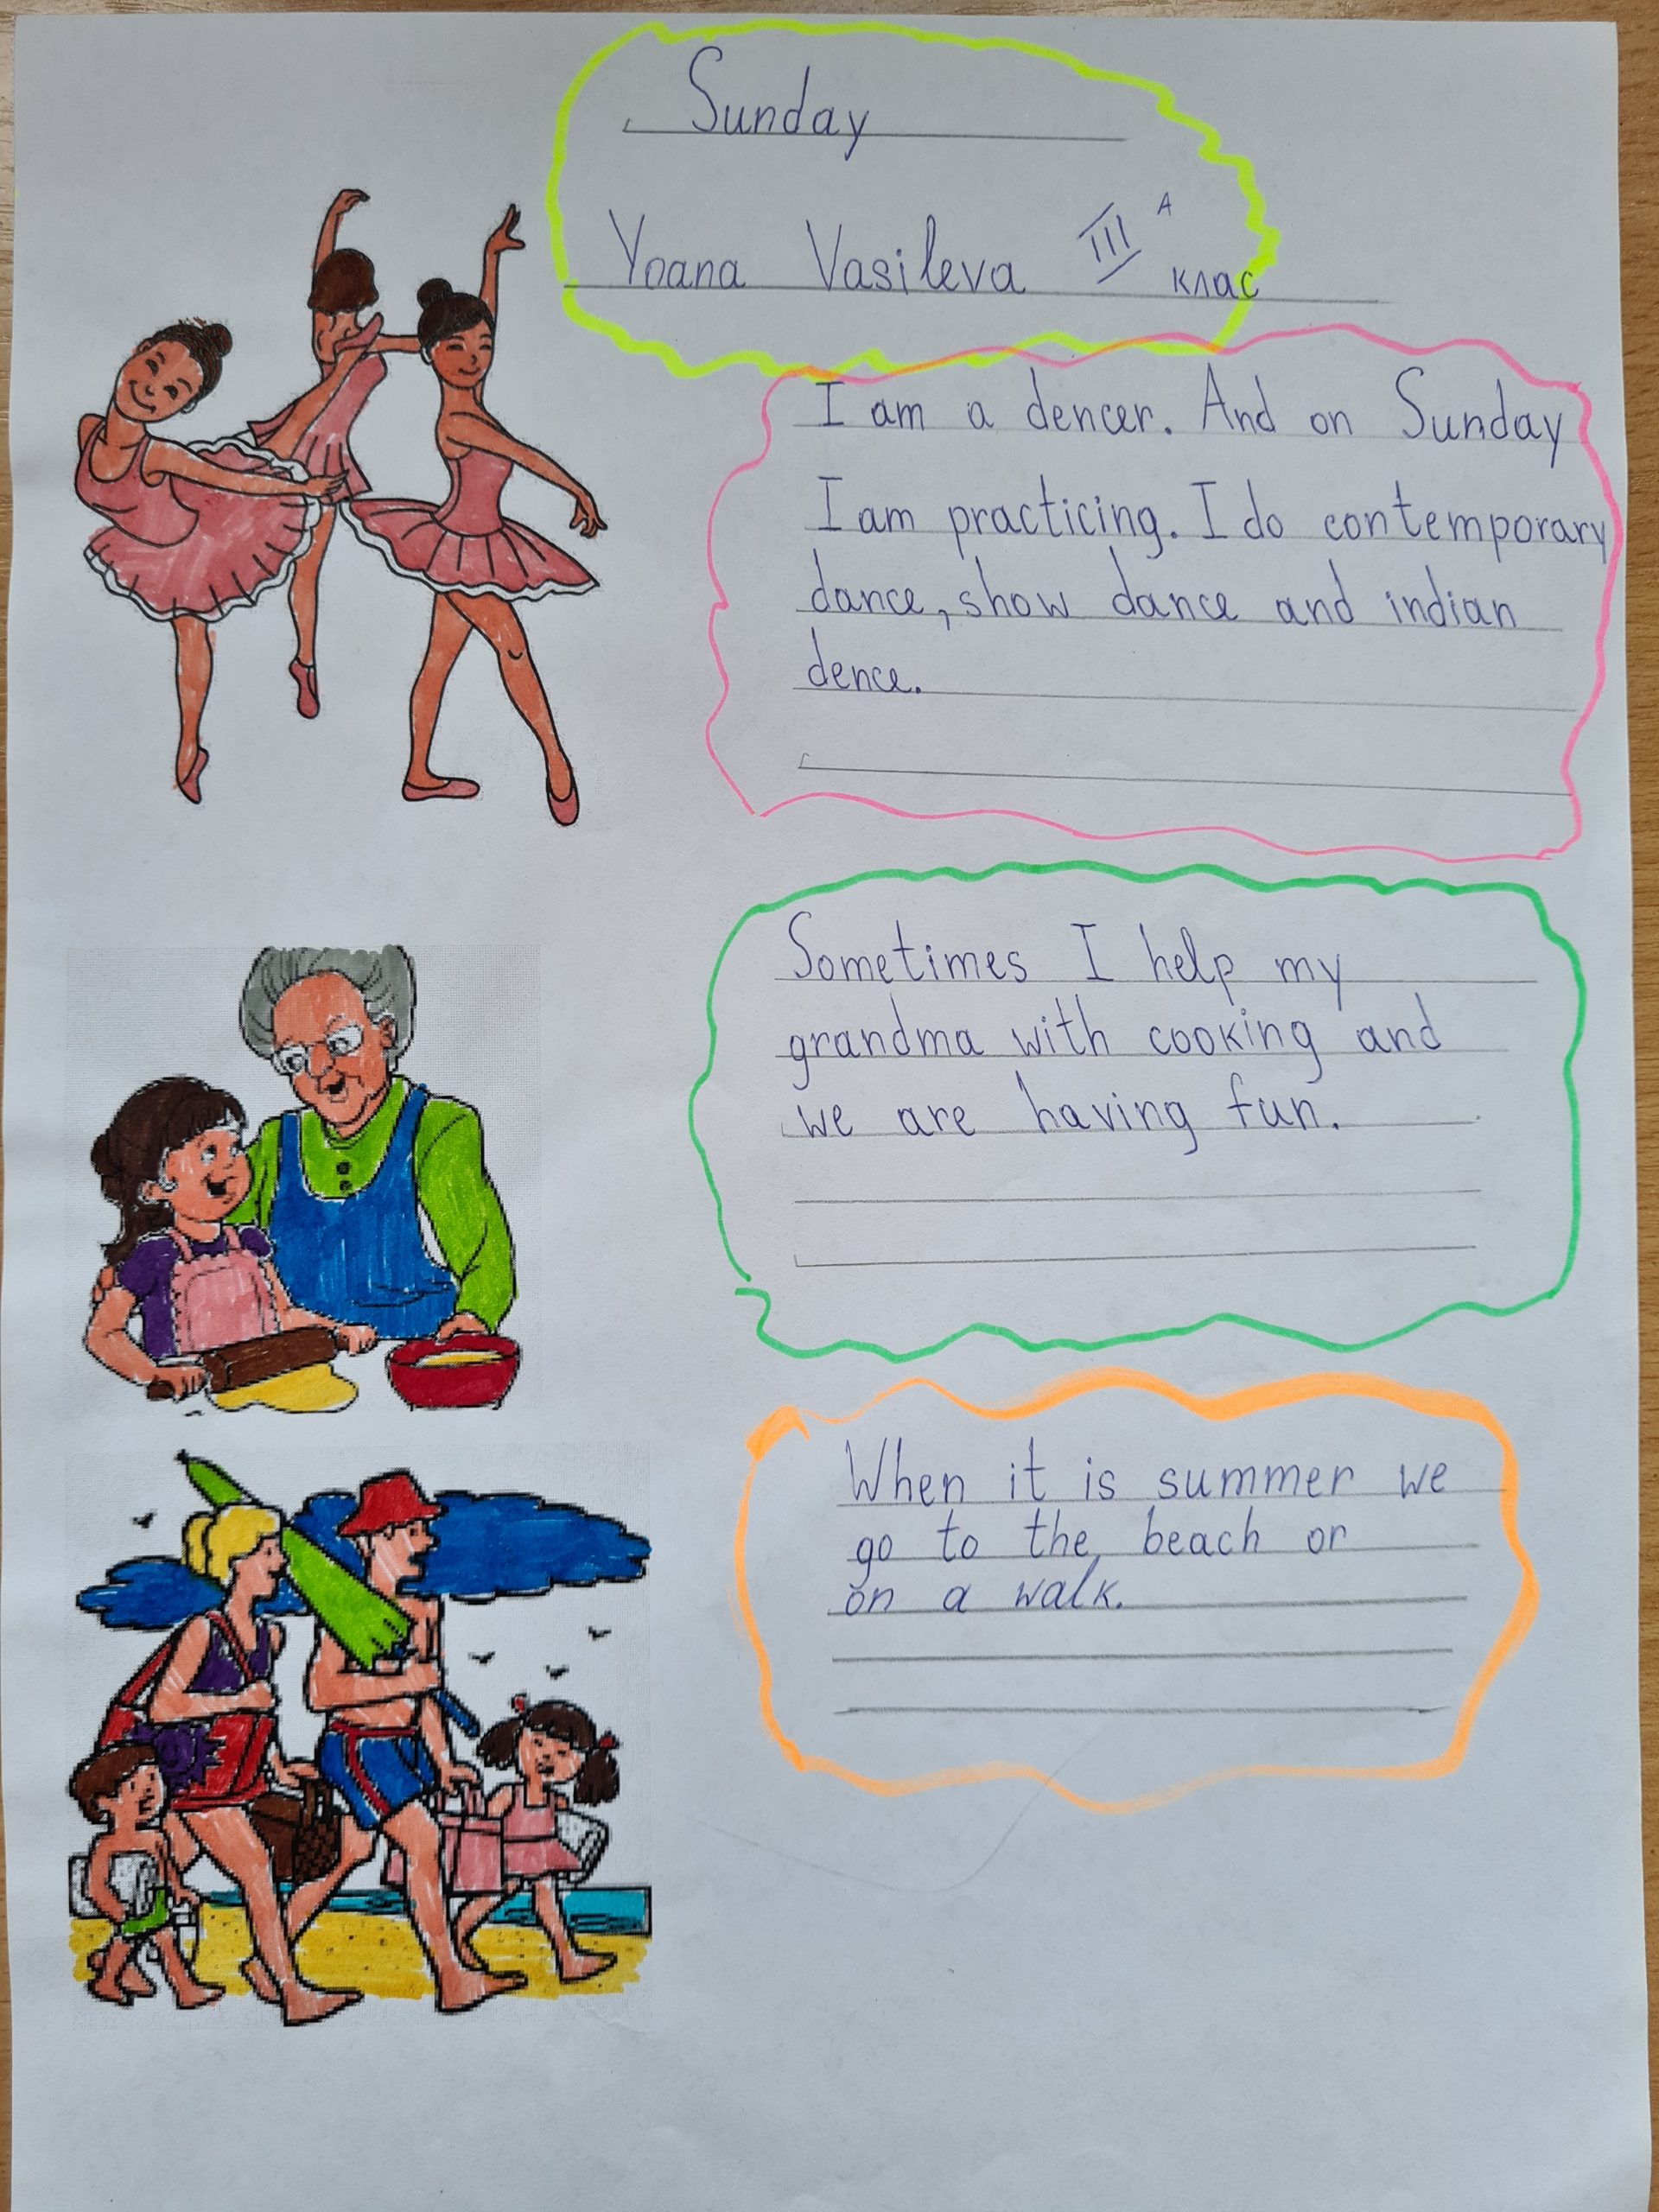 Sunday
Yoana Vasileva III A клас
I am a dencer. And on Sunday
I am practicing. I do contemporary
dance, show dance and indian
dence.
Sometimes I help my
grandma with cooking and
we are having fun.
When it is summer we
go to the beach or
on a walk.